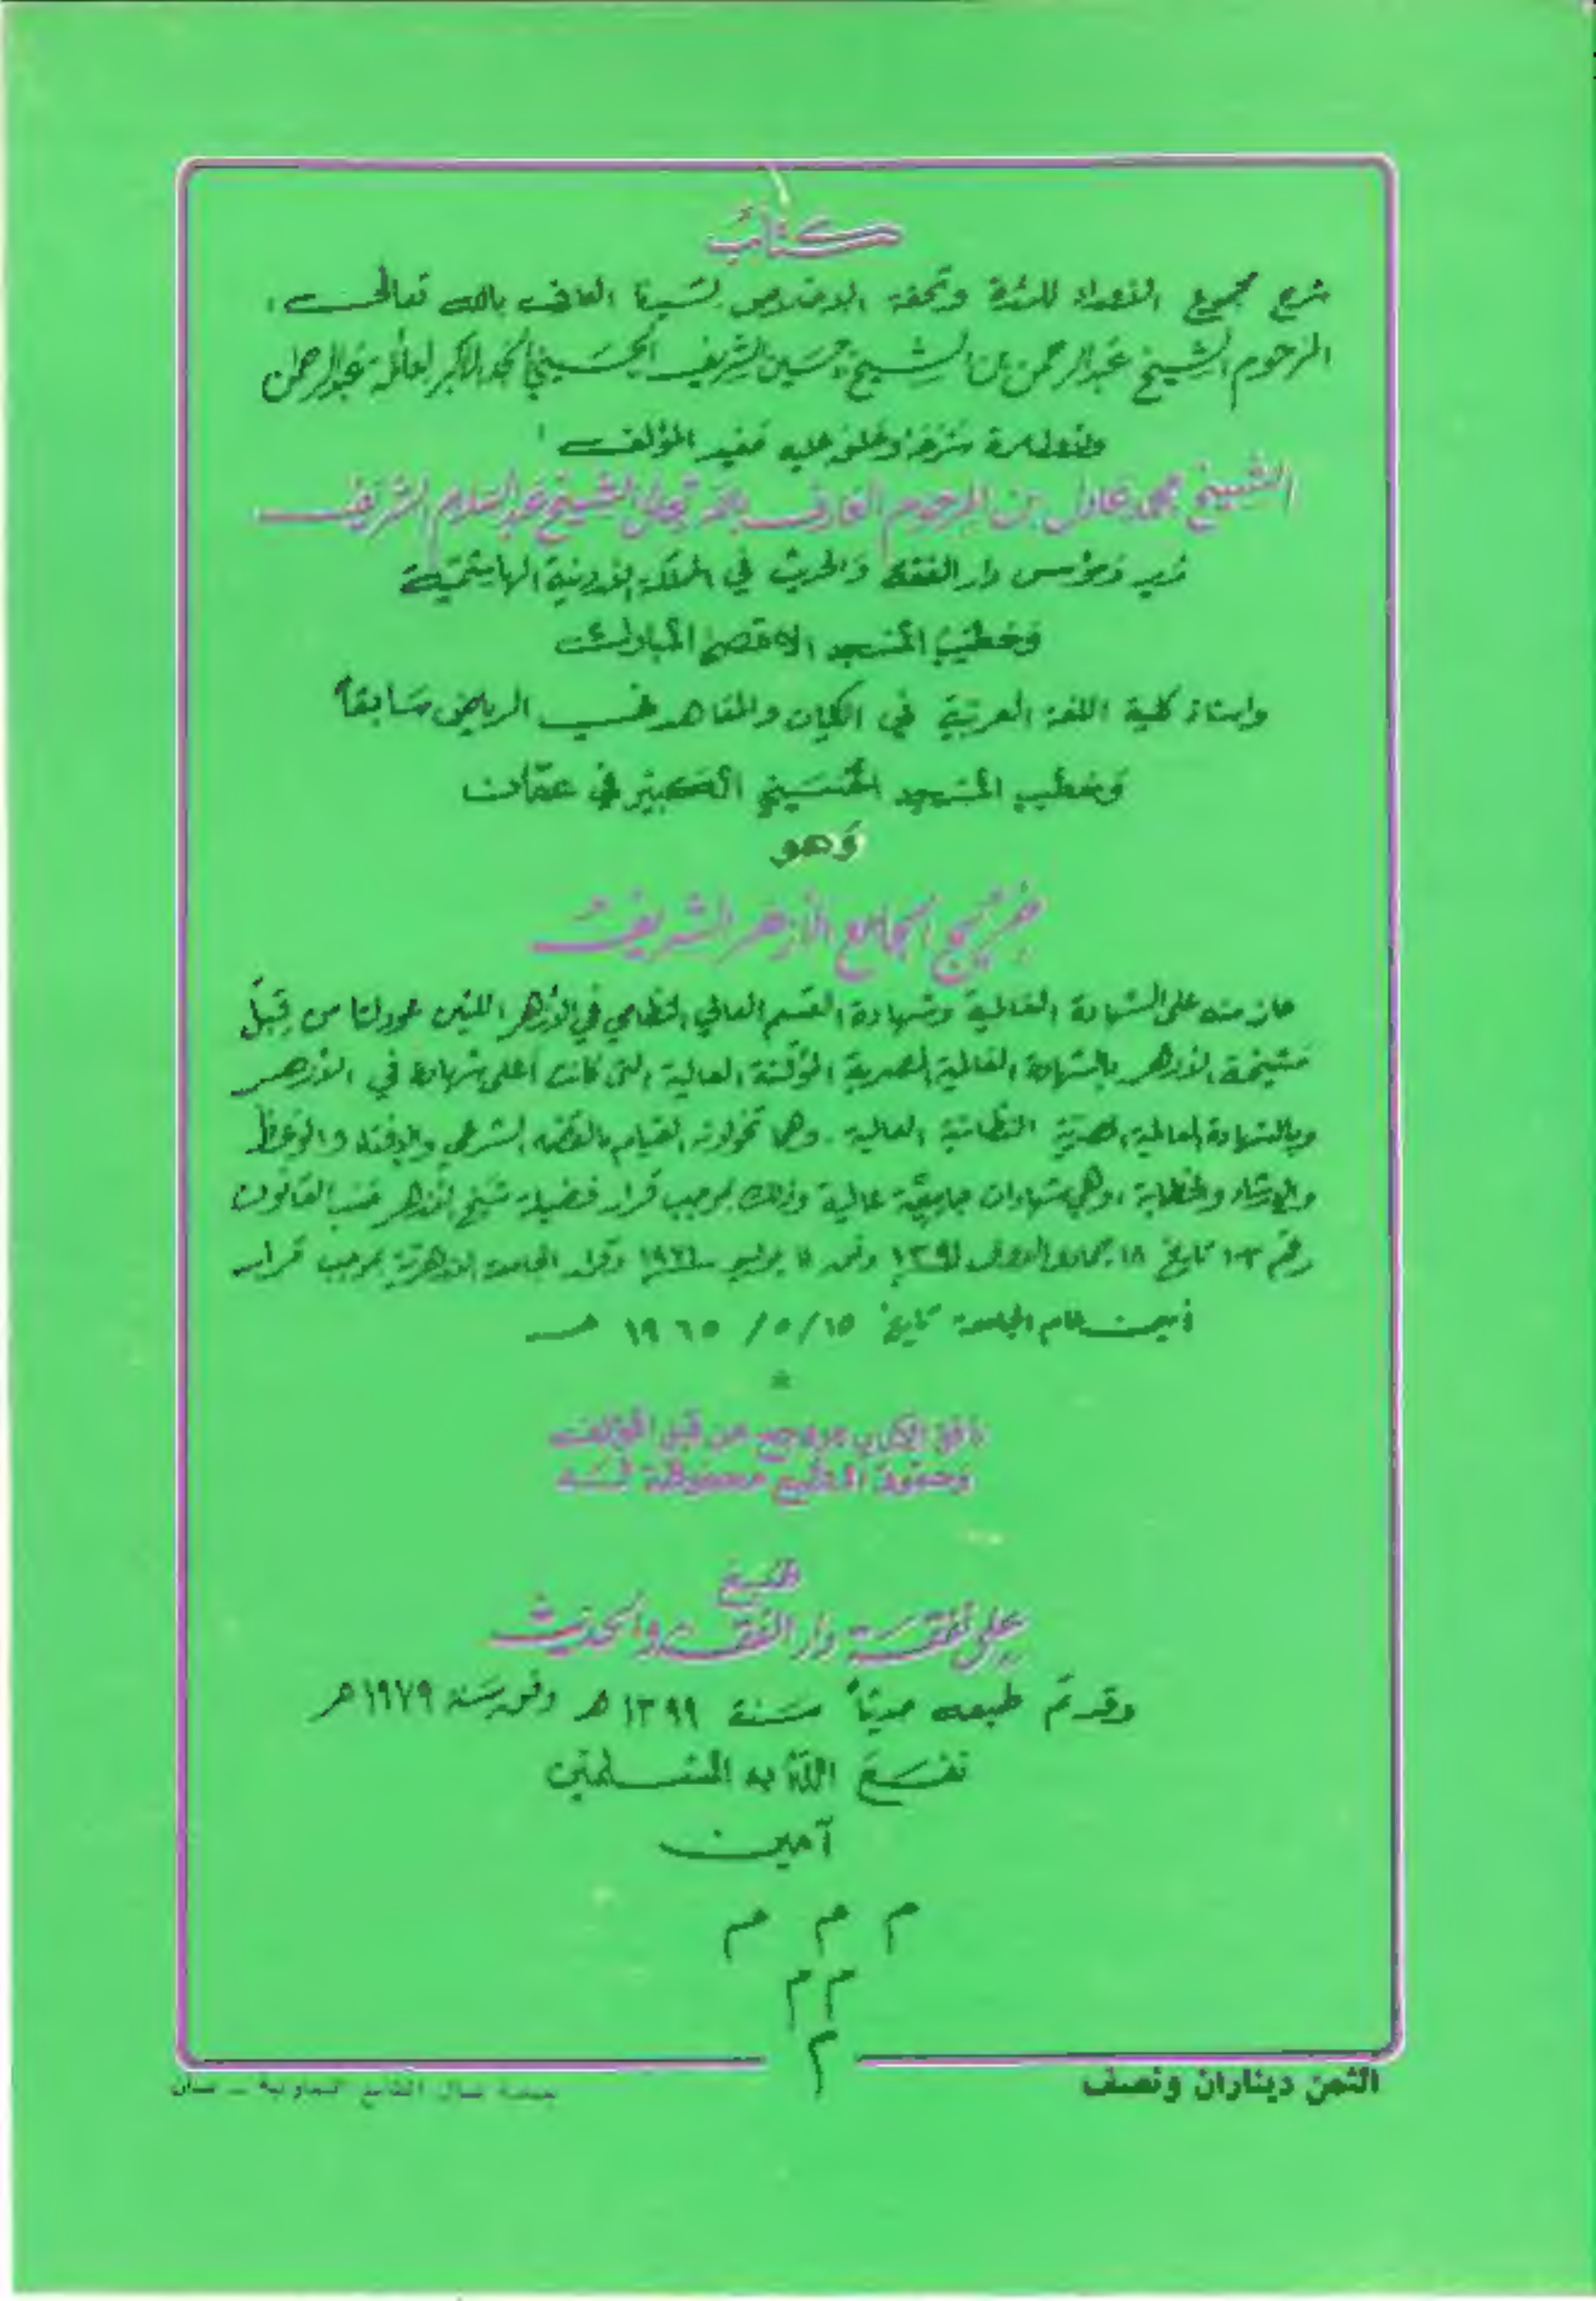 كتاب
شرح مجموع القصائد للشدة وتحفة الاخلاص لسيدنا العارف بالله تعالى
المرحوم الشيخ عبد الرحمن بن الشيخ حسين الشريف الحسيني الجد الأكبر لعائلة عبد الرحمن
شرحه وعلق عليه حفيد المؤلف
الشيخ محمد عادل بن المرحوم العارف بالله تعالى الشيخ عبد السلام الشريف
مدير ومؤسس دار الفقه والحديث في المملكة الاردنية الهاشمية
وخطيب المسجد الاقصى المبارك
واستاذ كلية اللغة العربية في الكليات والمعاهد في الرياض سابقاً
وخطيب المسجد الحسيني الكبير في عمان
وهو
خريج الجامع الأزهر الشريف
حاز منه على الشهادة العالمية وشهادة القسم العالي النظامي في الأزهر اللتين عودلتا من قبل
مشيخة الأزهر بالشهادة العالمية المصرية المؤقتة العالية التي كانت أعلى شهادة في الأزهر
وبالشهادة العالمية المصرية النظامية العالية. وهما تخولانه القيام بالقضاء الشرعي والإفتاء والوعظ
والإرشاد والخطابة، وهي شهادات جامعية عالية وذلك بموجب قرار فضيلة شيخ الأزهر حسب القانون
رقم ١٠٣ تاريخ ١٨ جمادى الاولى وقرار الجامعة الازهرية بموجب قرار
أمين عام الجامعة تاريخ ١٥/ ٥/ ١٩٦٥ هـ
*
من قبل المؤلف
وحقوق الطبع محفوظة له
طبع
على نفقة دار الفقه والحديث
وقد تم طبعه حديثاً سنة ١٣٩٩ هـ وفق سنة ١٩٧٩ هـ
نفع الله به المسلمين
آمين
م م م
م م
م
الثمن ديناران ونصف
جمعية عمال المطابع التعاونية - عمان